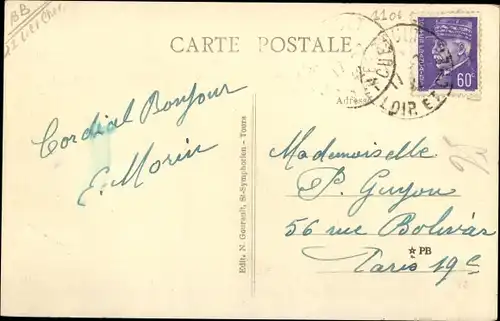 BB
CARTE POSTALE
60c
LOIR ET
Adresse
Cordial Bonjour
E. Morin
Edit. N. Gourault, St-Symphorien - Tours
Mademoiselle
P. Guyon
56 rue Bolivar
PB
Paris 19e